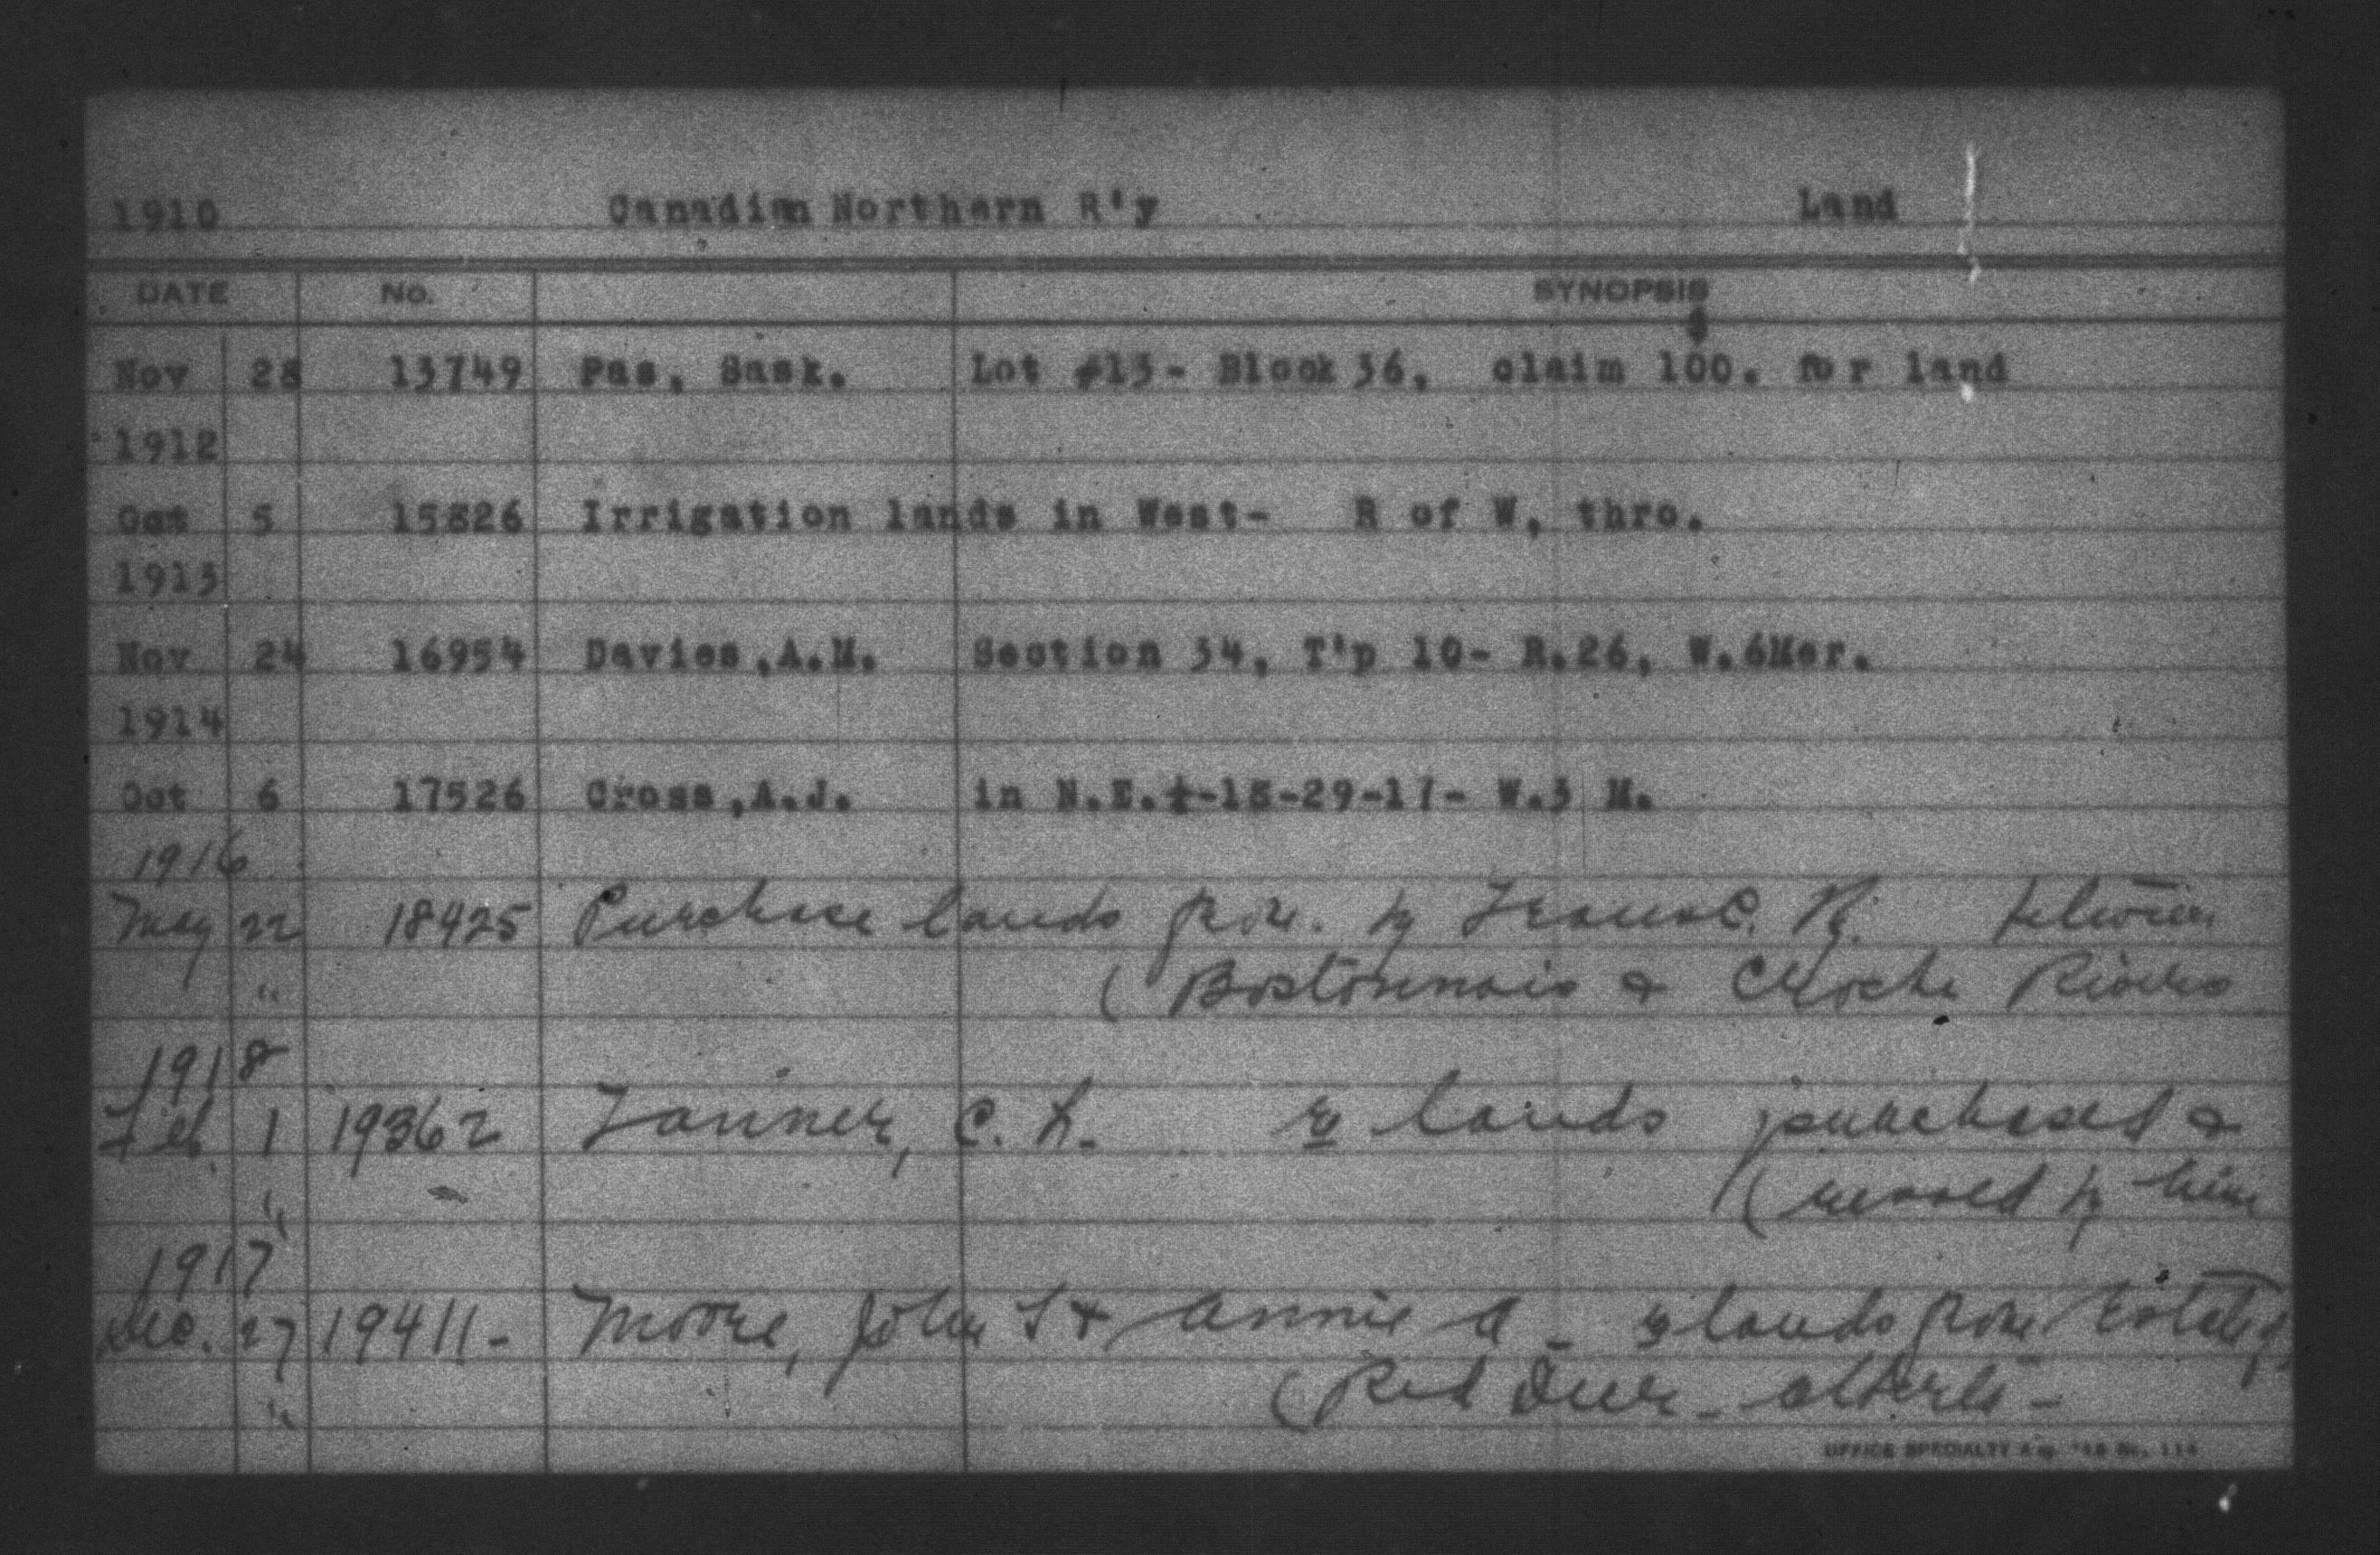 1910 Canadian Northern R'y Land
DATE No. SYNOPSIS
Nov 28 13749 Pas, Sask. Lot #13- Block 36, claim $100. for land
1912
Oct 5 15826 Irrigation lands in West- R of W, thro.
1913
Nov 24 16954 Davies,A.M. Section 34, T'p 10- R.26, W.6Mer.
1914
Oct 6 17526 Cross,A.J. in N.E.¼-18-29-17- W.3 M.
1916
May 22 18425 Purchase lands from by TransC. Ry. between
" (Bostonnais & Croche Rivers
1918
Feb. 1 19362 Tanner, C. L. re lands purchased &
" ( by him
1917
Dec. 27 19411- Moore, John T & Annie A - re lands from Estate of
" (Red Deer - Alberta -
OFFICE SPECIALTY